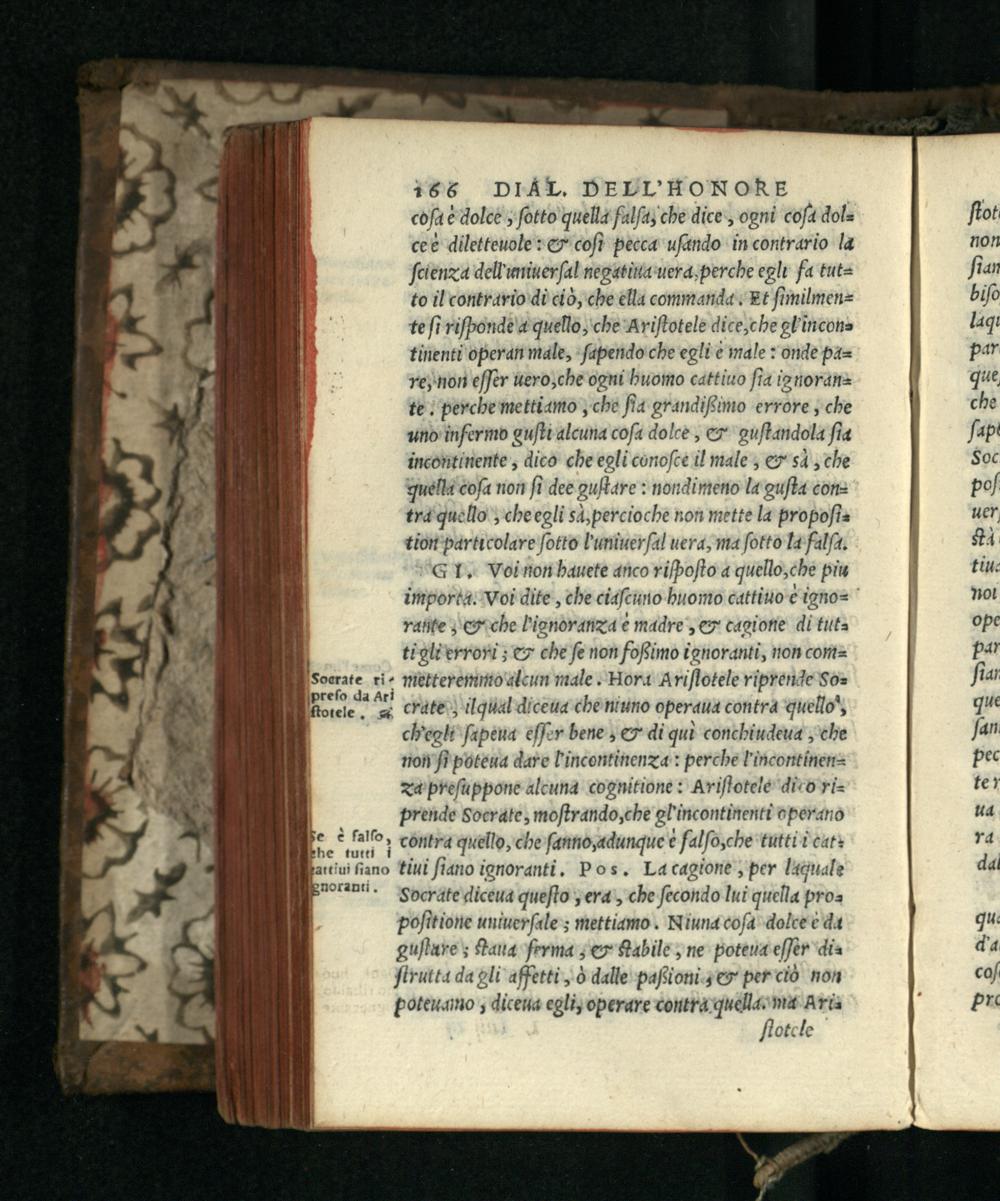 166 DIAL. DELL'HONORE
cosa è dolce, sotto quella falsa, che dice, ogni cosa dol=
ce è diletteuole: & cosi pecca usando in contrario la
scienza dell'uniuersal negatiua uera, perche egli fa tut=
to il contrario di ciò, che ella commanda. Et similmen=
te si risponde a quello, che Aristotele dice, che gl'incon=
tinenti operan male, sapendo che egli è male: onde pa=
re, non esser uero, che ogni huomo cattiuo sia ignoran=
te. perche mettiamo, che sia grandißimo errore, che
uno infermo gusti alcuna cosa dolce, & gustandola sia
incontinente, dico che egli conosce il male, & sà, che
quella cosa non si dee gustare: nondimeno la gusta con=
tra quello, che egli sà, percioche non mette la proposi=
tion particolare sotto l'uniuersal uera, ma sotto la falsa.
GI. Voi non hauete anco risposto a quello, che piu
importa. Voi dite, che ciascuno huomo cattiuo è igno=
rante, & che l'ignoranza è madre, & cagione di tut=
ti gli errori; & che se non foßimo ignoranti, non com=
metteremmo alcun male. Hora Aristotele riprende So=
crate, ilqual diceua che niuno operaua contra quello,
ch'egli sapeua esser bene, & di quì conchiudeua, che
non si poteua dare l'incontinenza: perche l'incontinen=
za presuppone alcuna cognitione: Aristotele dico ri=
prende Socrate, mostrando, che gl'incontinenti operano
contra quello, che sanno, adunque è falso, che tutti i cat=
tiui siano ignoranti. POS. La cagione, per laquale
Socrate diceua questo, era, che secondo lui quella pro=
positione uniuersale; mettiamo. Niuna cosa dolce è da
gustare; staua ferma, & stabile, ne poteua esser di=
strutta da gli affetti, ò dalle paßioni, & per ciò non
poteuamo, diceua egli, operare contra quella. ma Ari=
stotele
Socrate ri=
preso da Ari
stotele.
Se è falso,
che tutti i
cattiui siano
ignoranti.